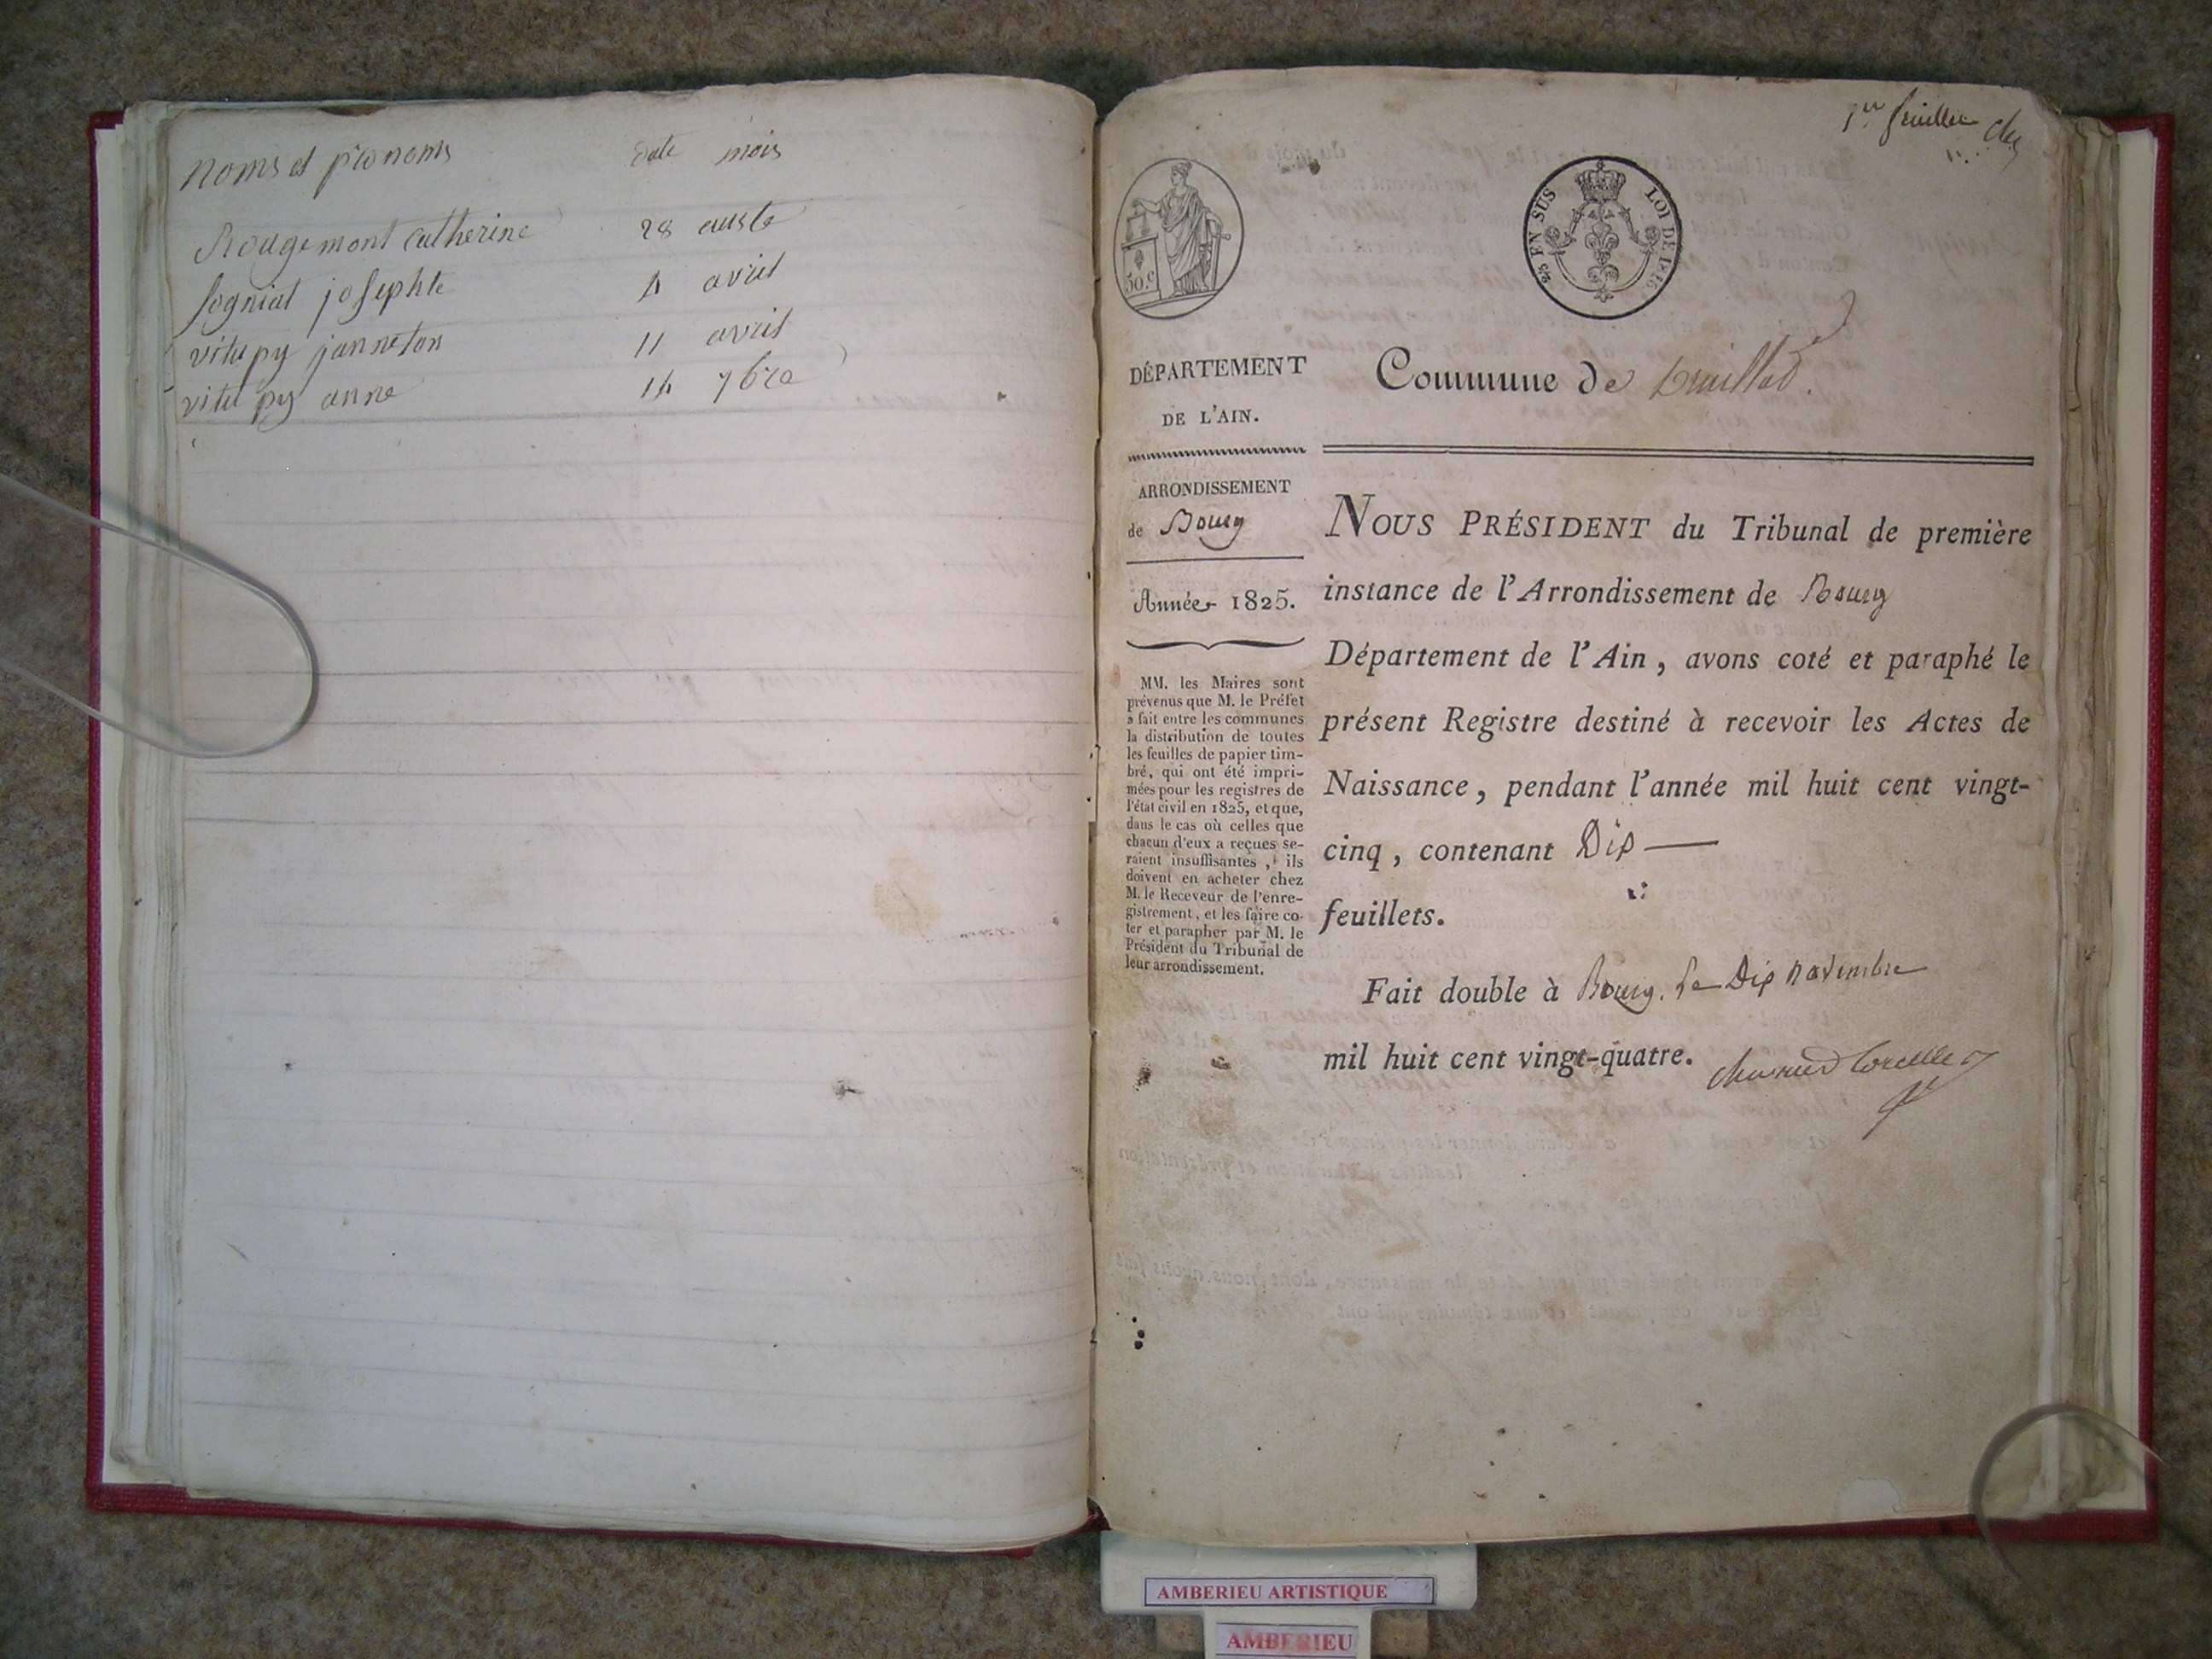 noms et pronoms date mois
Rougemont catherine 28 auste
sogniat josephte 4 avril
vitupy janneton 11 avril
vitupy anne 14 7bre
1er feuillet
50.c
EN SUS
LOI DE 1816
Commune de Druillat.
DÉPARTEMENT
DE L'AIN.
ARRONDISSEMENT
de Bourg
Année 1825.
MM. les Maires sont
prévenus que M. le Préfet
a fait entre les communes
la distribution de toutes
les feuilles de papier tim-
bré, qui ont été impri-
mées pour les registres de
l'état civil en 1825, et que,
dans le cas où celles que
chacun d'eux a reçues se-
raient insuffisantes, ils
doivent en acheter chez
M. le Receveur de l'enre-
gistrement, et les faire co-
ter et parapher par M. le
Président du Tribunal de
leur arrondissement.
NOUS PRÉSIDENT du Tribunal de première
instance de l'Arrondissement de Bourg
Département de l'Ain, avons coté et paraphé le
présent Registre destiné à recevoir les Actes de
Naissance, pendant l'année mil huit cent vingt-
cinq, contenant Dix
feuillets.
Fait double à Bourg, Le Dix novembre
mil huit cent vingt-quatre.
AMBERIEU ARTISTIQUE
AMBERIEU